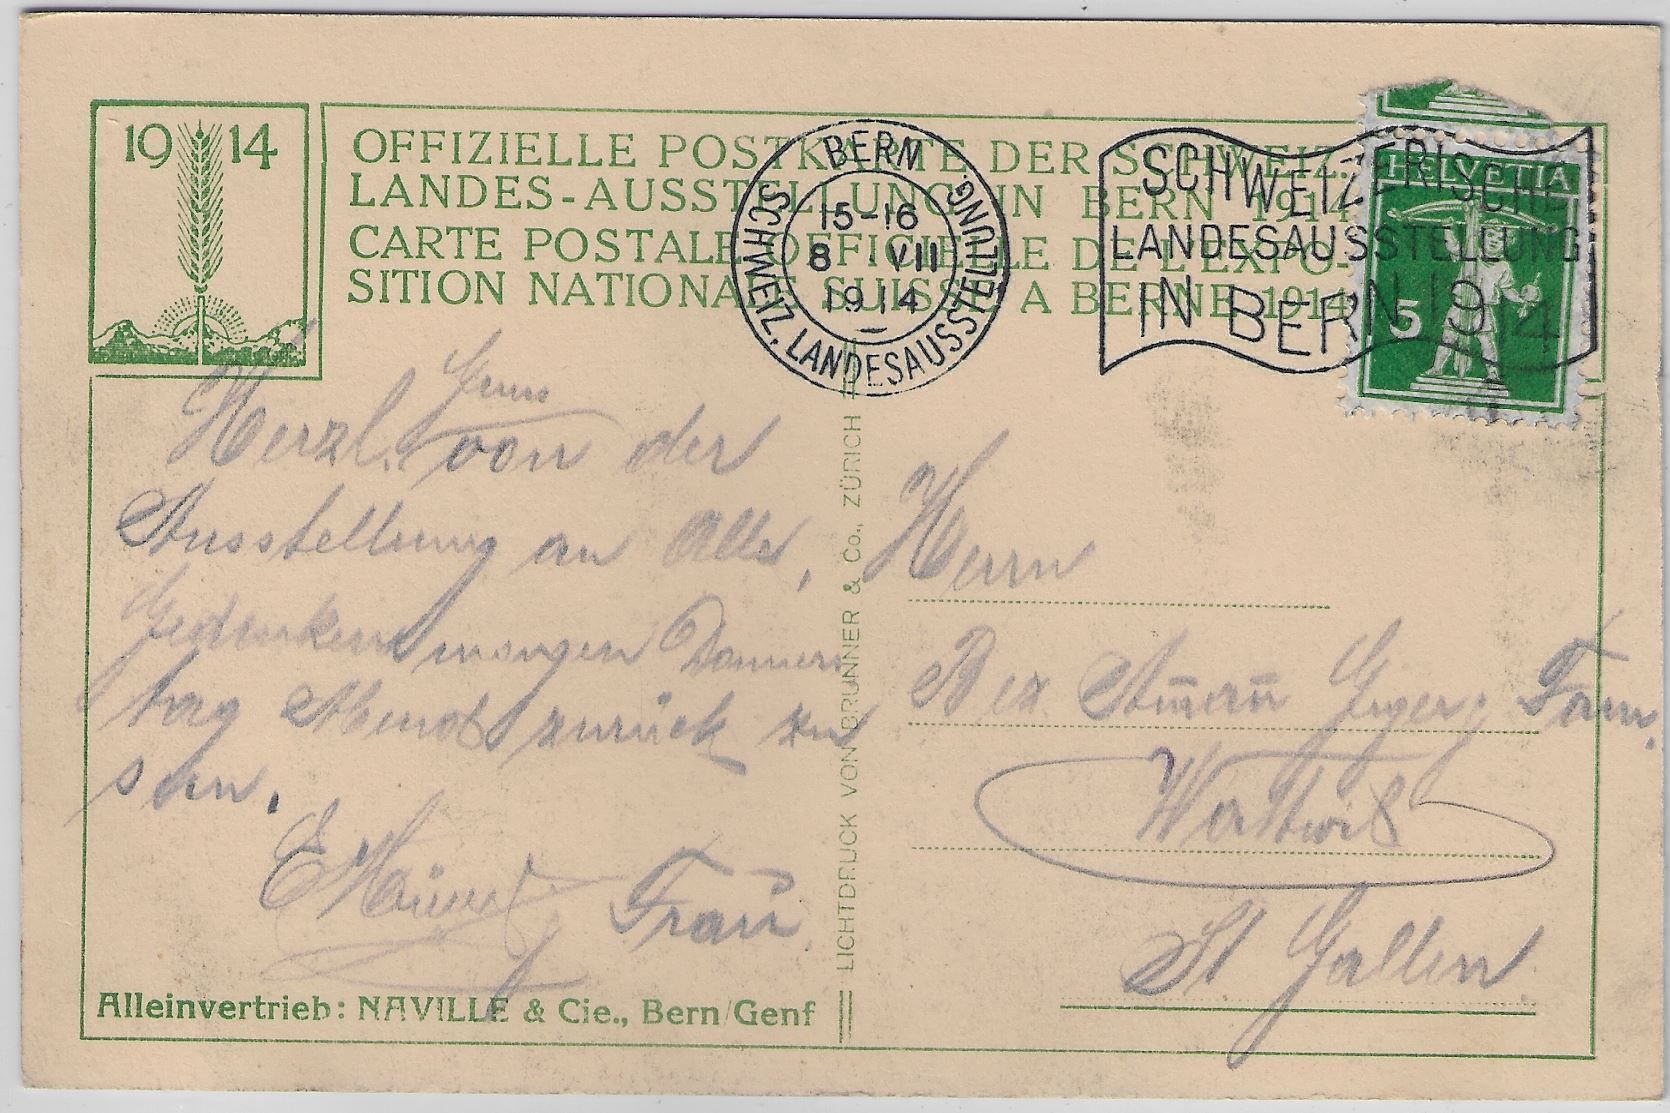 19 14
OFFIZIELLE POSTKARTE DER SCHWEIZ.
LANDES-AUSSTELLUNG IN BERN 1914
CARTE POSTALE OFFICIELLE DE L'EXPO-
SITION NATIONALE SUISSE A BERNE 1914
BERN
SCHWEIZ. LANDESAUSSTELLUNG.
15-16
8 VII
1914
SCHWEIZERISCHE
LANDESAUSSTELLUNG
IN BERN 1914
HELVETIA
5
Gruss
Herzl. von der
Ausstellung an Alle,
Gedenken morgen Donners
tag Abend zurück zu
sein.
E Frau
LICHTDRUCK VON BRUNNER & Co., ZÜRICH
Herrn
Bez Amann Giger,
Wattwil
St Gallen
Alleinvertrieb: NAVILLE & Cie., Bern/Genf